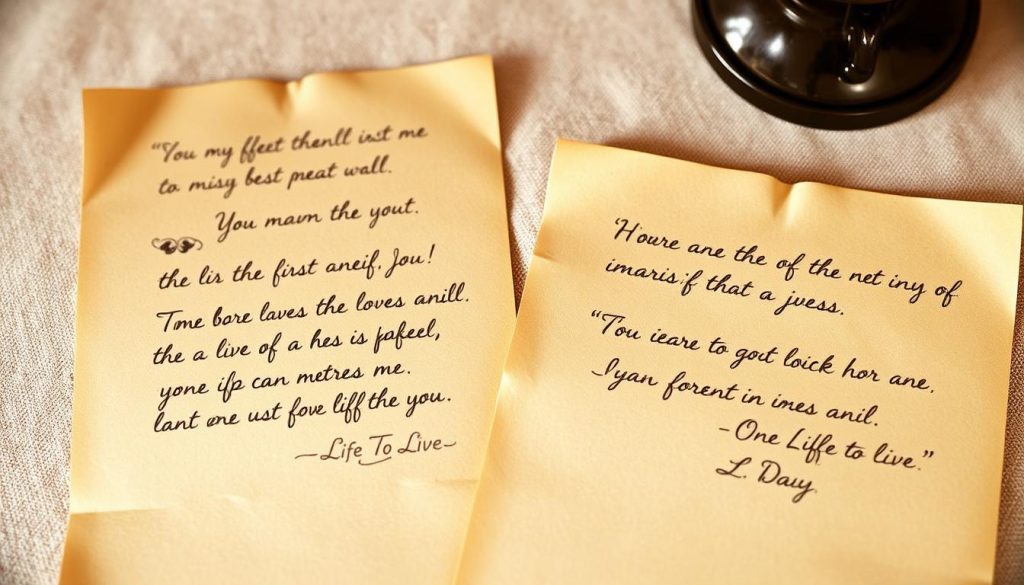 “You my ffeet thenll inst me
to misy best peat wall.
You mavn the yout.
the lis the first aneif, Jou!
Tme bore laves the loves anill.
the a live of a hes is fafeel,
yone ifp can metres me.
lant one ust fove liff the you.
—Life To Live—
‘Houre ane the of the net iny of
imaris,f that a jvess.
“Tou ieare to got loick hor ane,
Iyan forent in imes anil.
–One Liffe to live.”
L. Dauy.